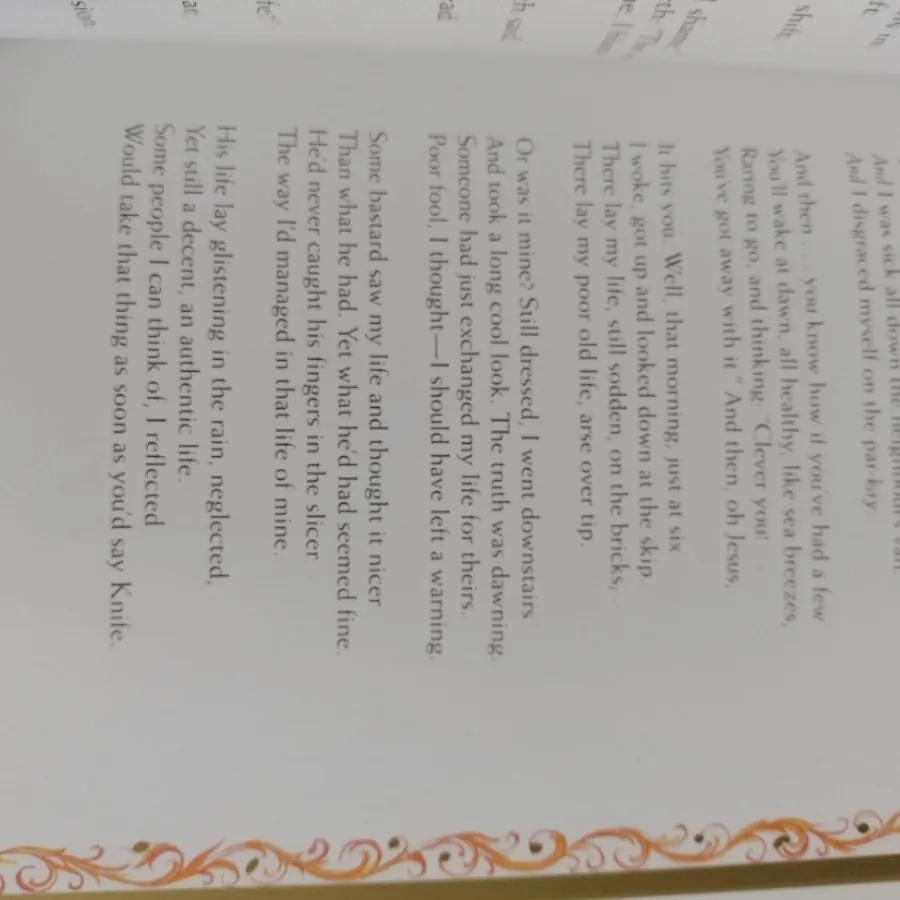 And I was sick all down the neighbour's van,
And I disgraced myself on the par-kay
And then . . . you know how if you've had a few
You'll wake at dawn, all healthy, like sea breezes,
Raring to go, and thinking: "Clever you!
You've got away with it." And then, oh Jesus,
It hits you. Well, that morning, just at six
I woke, got up and looked down at the skip.
There lay my life, still sodden, on the bricks;
There lay my poor old life, arse over tip.
Or was it mine? Still dressed, I went downstairs
And took a long cool look. The truth was dawning.
Someone had just exchanged my life for theirs.
Poor fool, I thought—I should have left a warning.
Some bastard saw my life and thought it nicer
Than what he had. Yet what he'd had seemed fine.
He'd never caught his fingers in the slicer
The way I'd managed in that life of mine.
His life lay glistening in the rain, neglected,
Yet still a decent, an authentic life.
Some people I can think of, I reflected
Would take that thing as soon as you'd say Knife.
shift